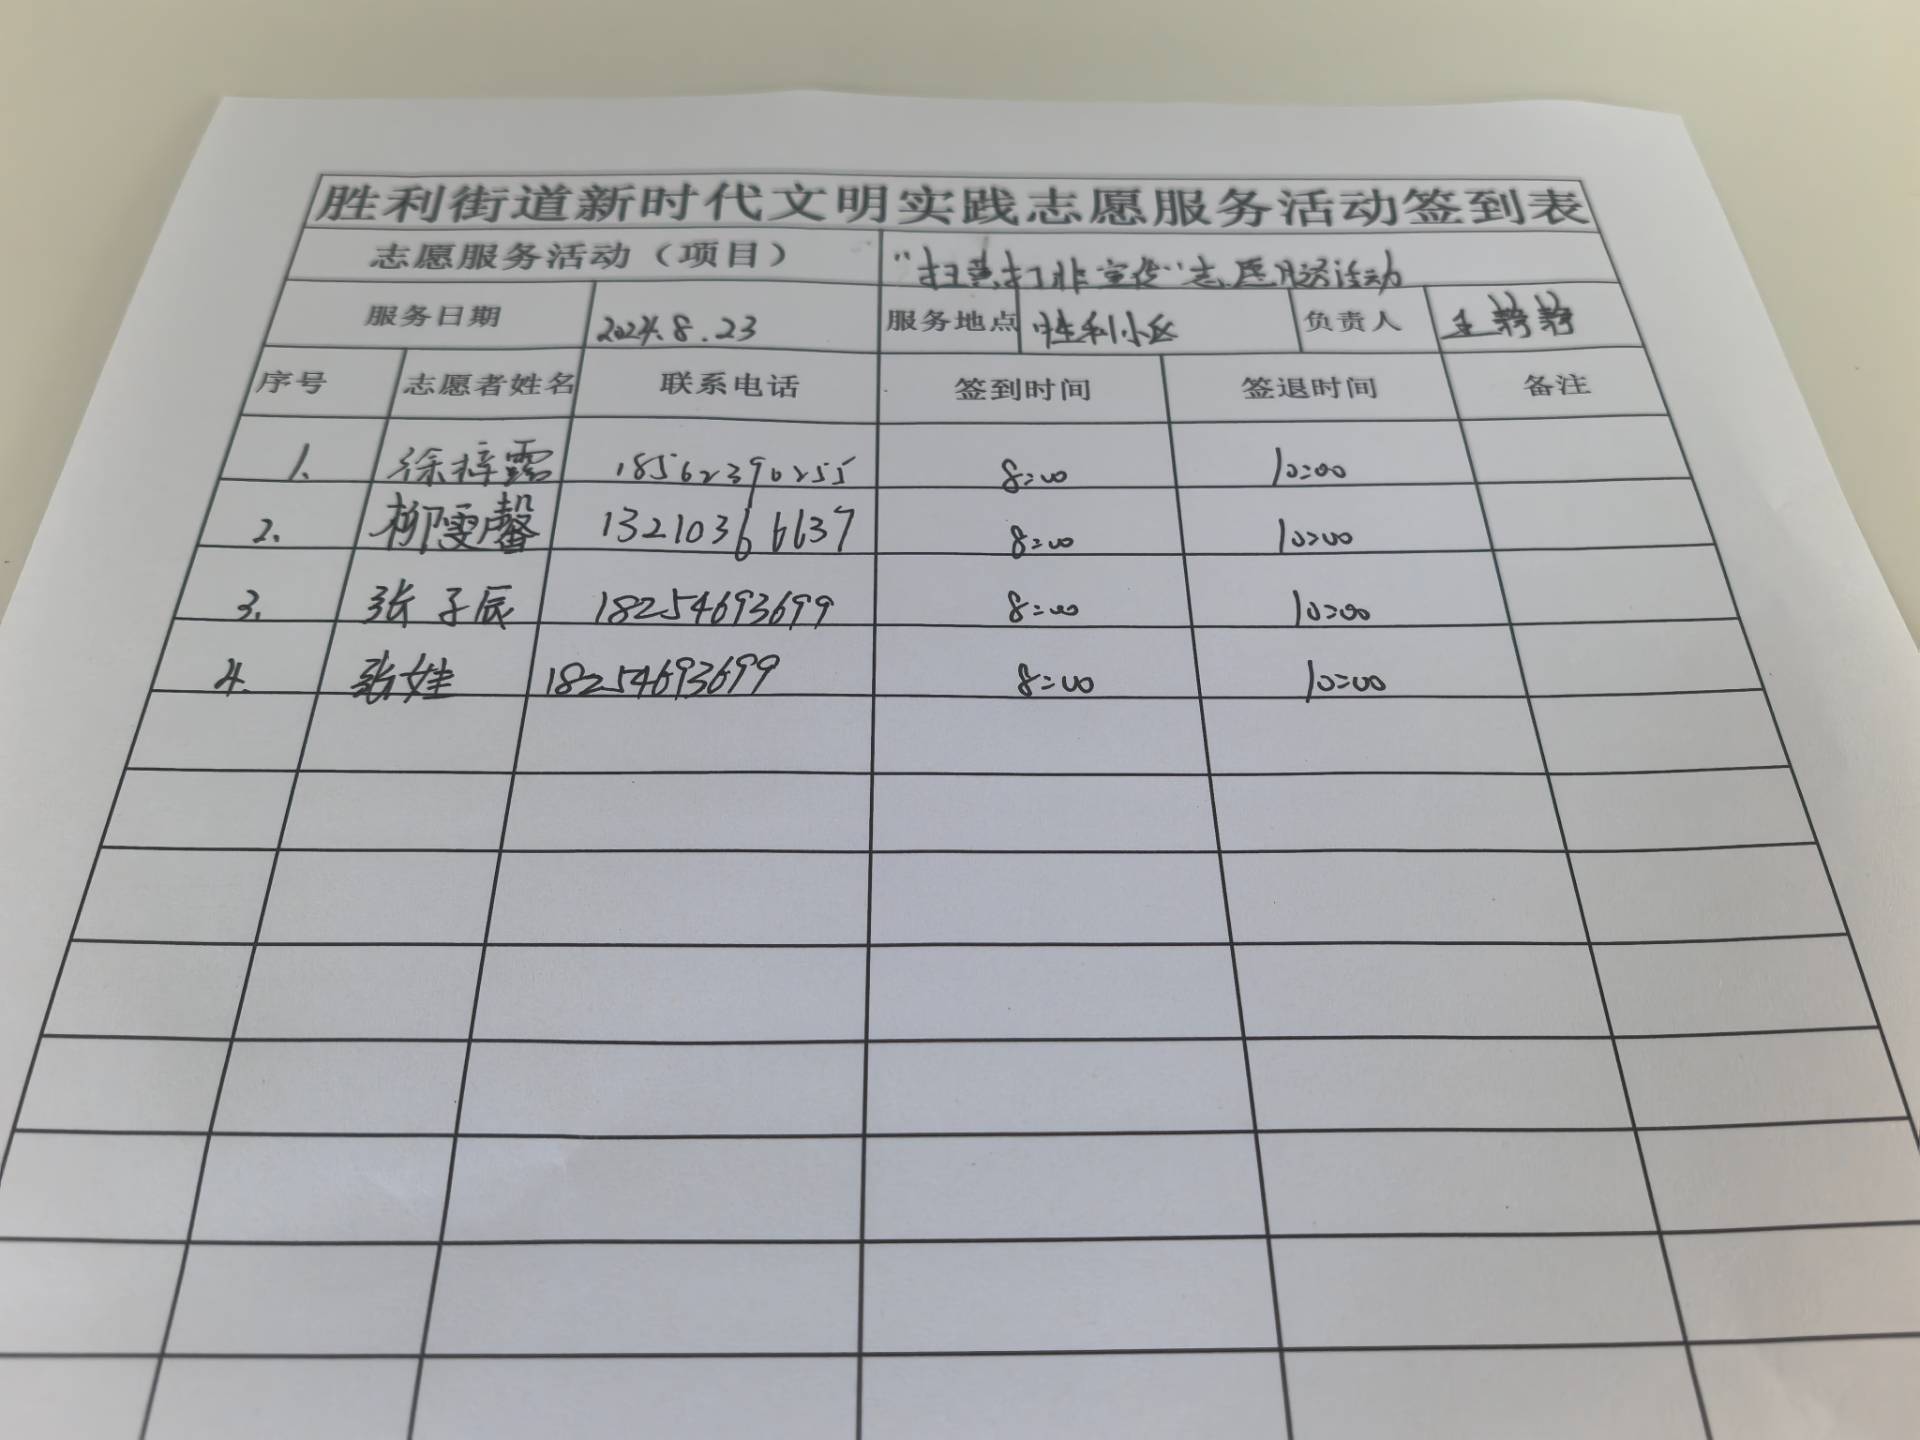 胜利街道新时代文明实践志愿服务活动签到表
志愿服务活动（项目） "扫黄打非宣传"志愿服务活动
服务日期 2024.8.23 服务地点 胜利小区 负责人 王静静
序号 志愿者姓名 联系电话 签到时间 签退时间 备注
1. 徐梓露 18562390255 8:00 10:00
2. 柳雯馨 13210366637 8:00 10:00
3. 张子辰 18254693699 8:00 10:00
4. 张娃 18254693699 8:00 10:00